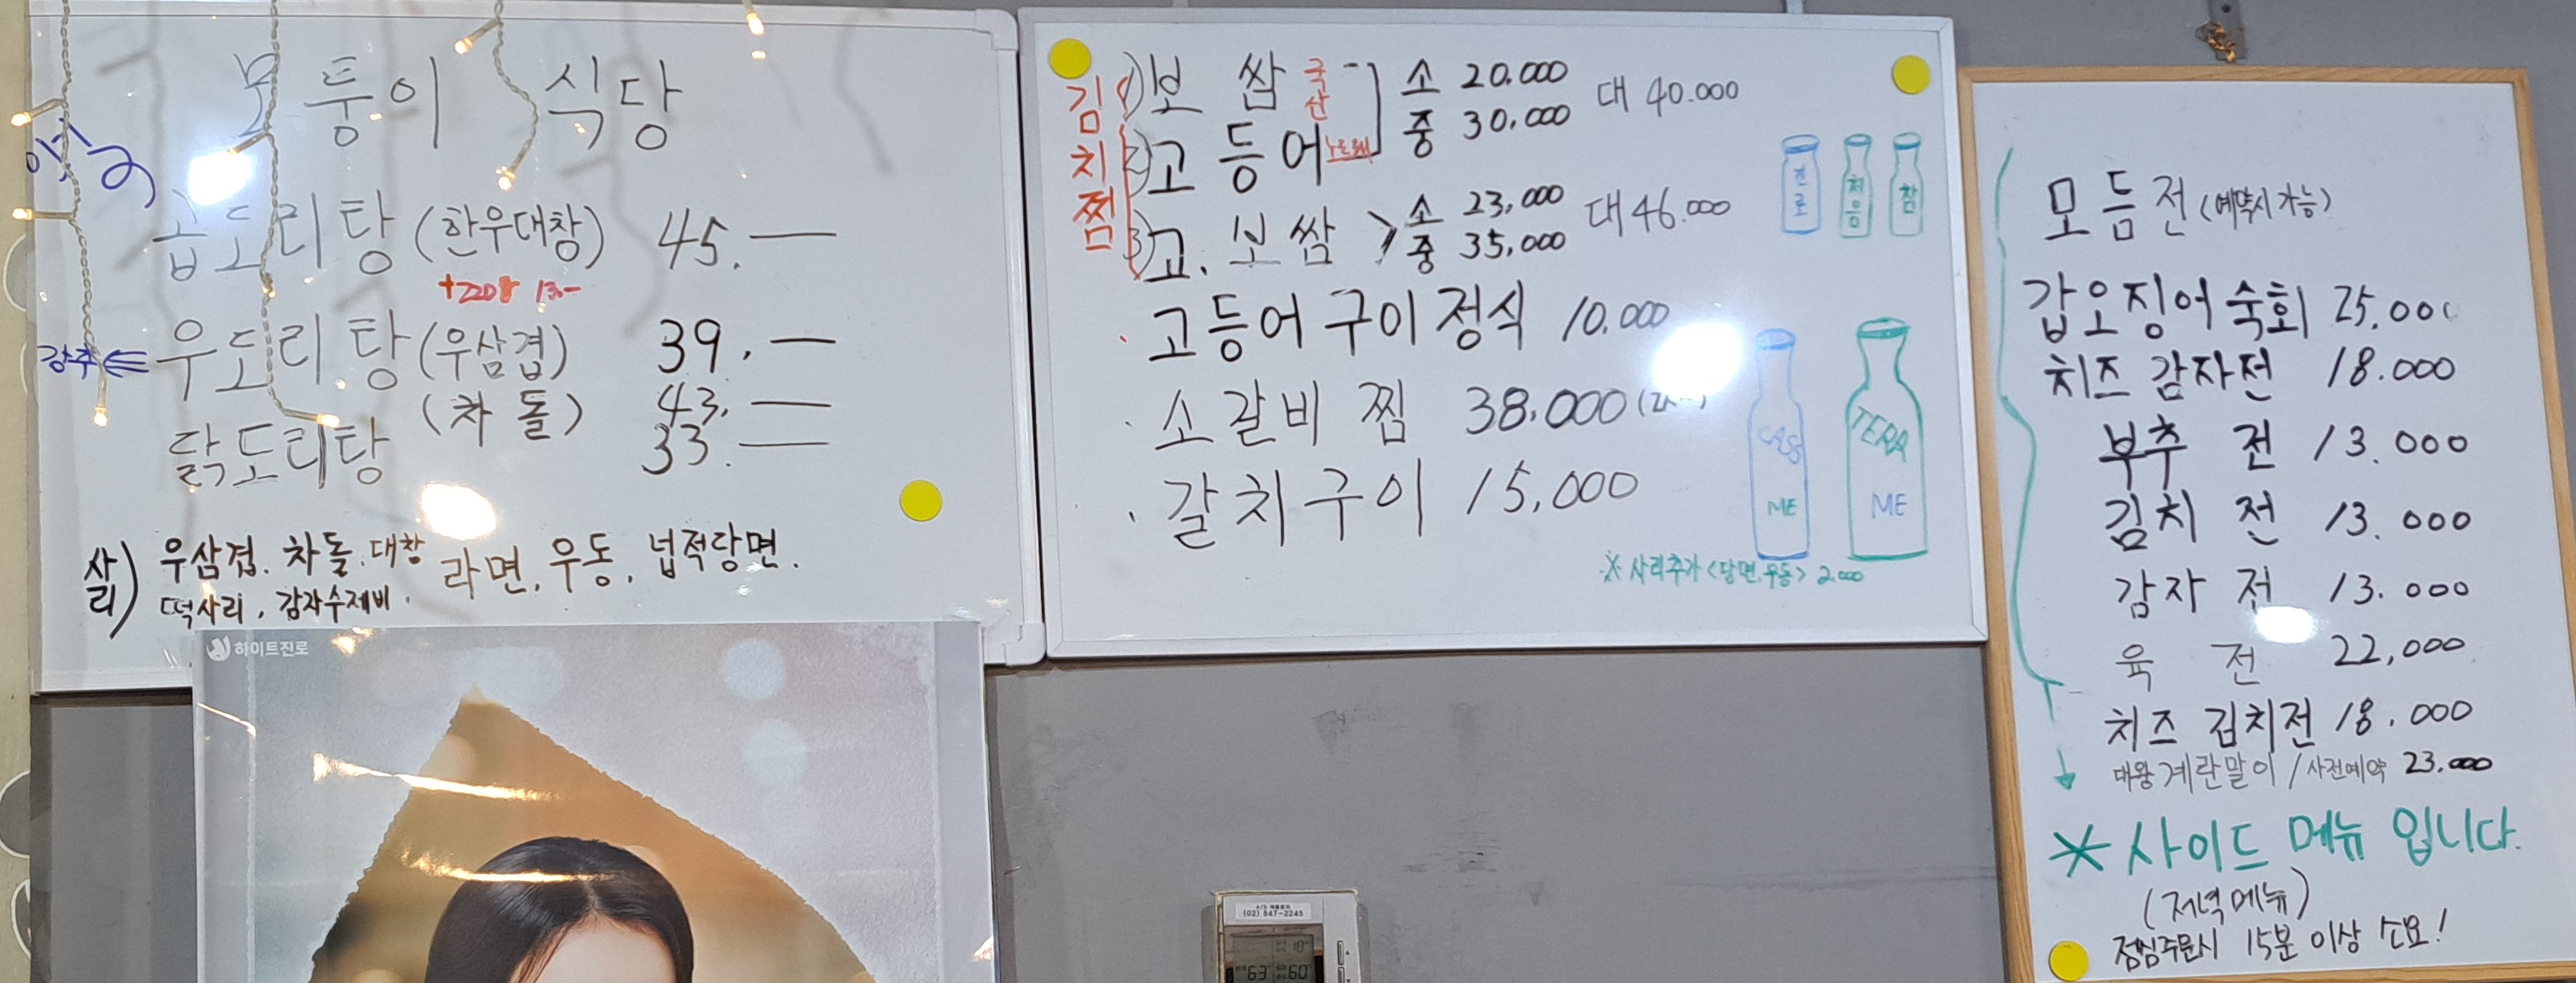 모퉁이 식당
곱도리탕 (한우대창) 45.—
+220g 13.-
강추 우도리탕 (우삼겹) 39.—
(차돌) 43.—
닭도리탕 33.—
사리) 우삼겹. 차돌. 대창 라면. 우동. 넙적당면.
떡사리. 감자수제비.
하이트진로
김치찜
1) 보쌈 국산 소 20.000 대 40.000
2) 고등어 노르웨이 중 30,000
3) 고.보쌈 소 23,000 대 46.000
중 35,000
· 고등어 구이 정식 10.000
· 소갈비 찜 38.000
· 갈치구이 15,000
진로 처음 참
CASS ME
TERA ME
※ 사리추가 <당면.우동> 2.000
모듬전 (예약시 가능)
갑오징어 숙회 25.000
치즈 감자전 18.000
부추 전 13.000
김치 전 13.000
감자 전 13.000
육 전 22,000
치즈 김치전 18.000
대왕 계란말이 / 사전예약 23.000
※ 사이드 메뉴 입니다.
(저녁 메뉴)
점심주문시 15분 이상 소요!
(02) 547-2245
18
63 60